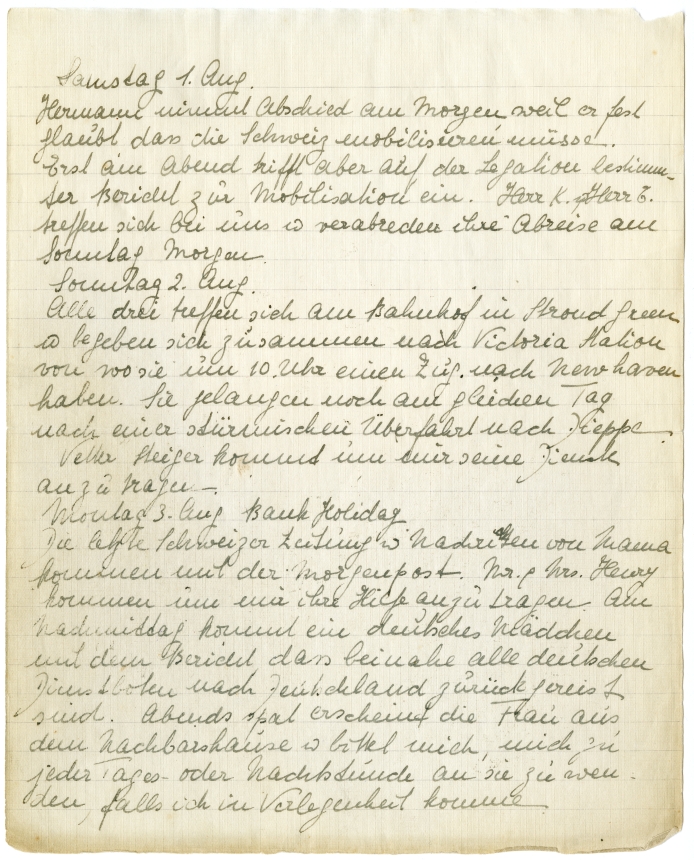 Samstag 1. Aug.
Hermann nimmt Abschied am Morgen weil er fest
glaubt dass die Schweiz mobilisieren müsse.
Erst am Abend trifft aber auf der Legation bestimm-
ter Bericht zur Mobilisation ein. Herr K. & Herr E.
treffen sich bei uns u verabreden ihre Abreise am
Sonntag Morgen.
Sonntag 2. Aug.
Alle drei treffen sich am Bahnhof in Stroud Green
u begeben sich zusammen nach Victoria Station
von wo sie um 10. Uhr einen Zug. nach Newhaven
haben. Sie gelangen noch am gleichen Tag
nach einer stürmischen Überfahrt nach Dieppe.
Vetter Steiger kommt um mir seine Dienste
anzutragen.
Montag 3. Aug Bank Holiday
Die letzte Schweizer Zeitung u Nachrichten von Mama
kommen mit der Morgenpost. Mr. & Mrs. Henry
kommen um mir ihre Hilfe anzutragen. Am
Nachmittag kommt ein deutsches Mädchen
mit dem Bericht dass beinahe alle deutschen
Dienstboten nach Deutschland zurückgereist
sind. Abends spät erscheint die Frau aus
dem Nachbarshause u bittet mich, mich zu
jeder Tages- oder Nachtstunde an sie zu wen-
den, falls ich in Verlegenheit komme